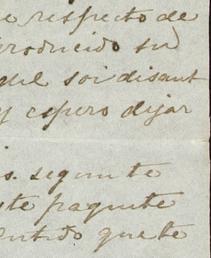 respecto de
producido su
del soi disant
y espero dejar
s. segun te
ste paquete
entido que te